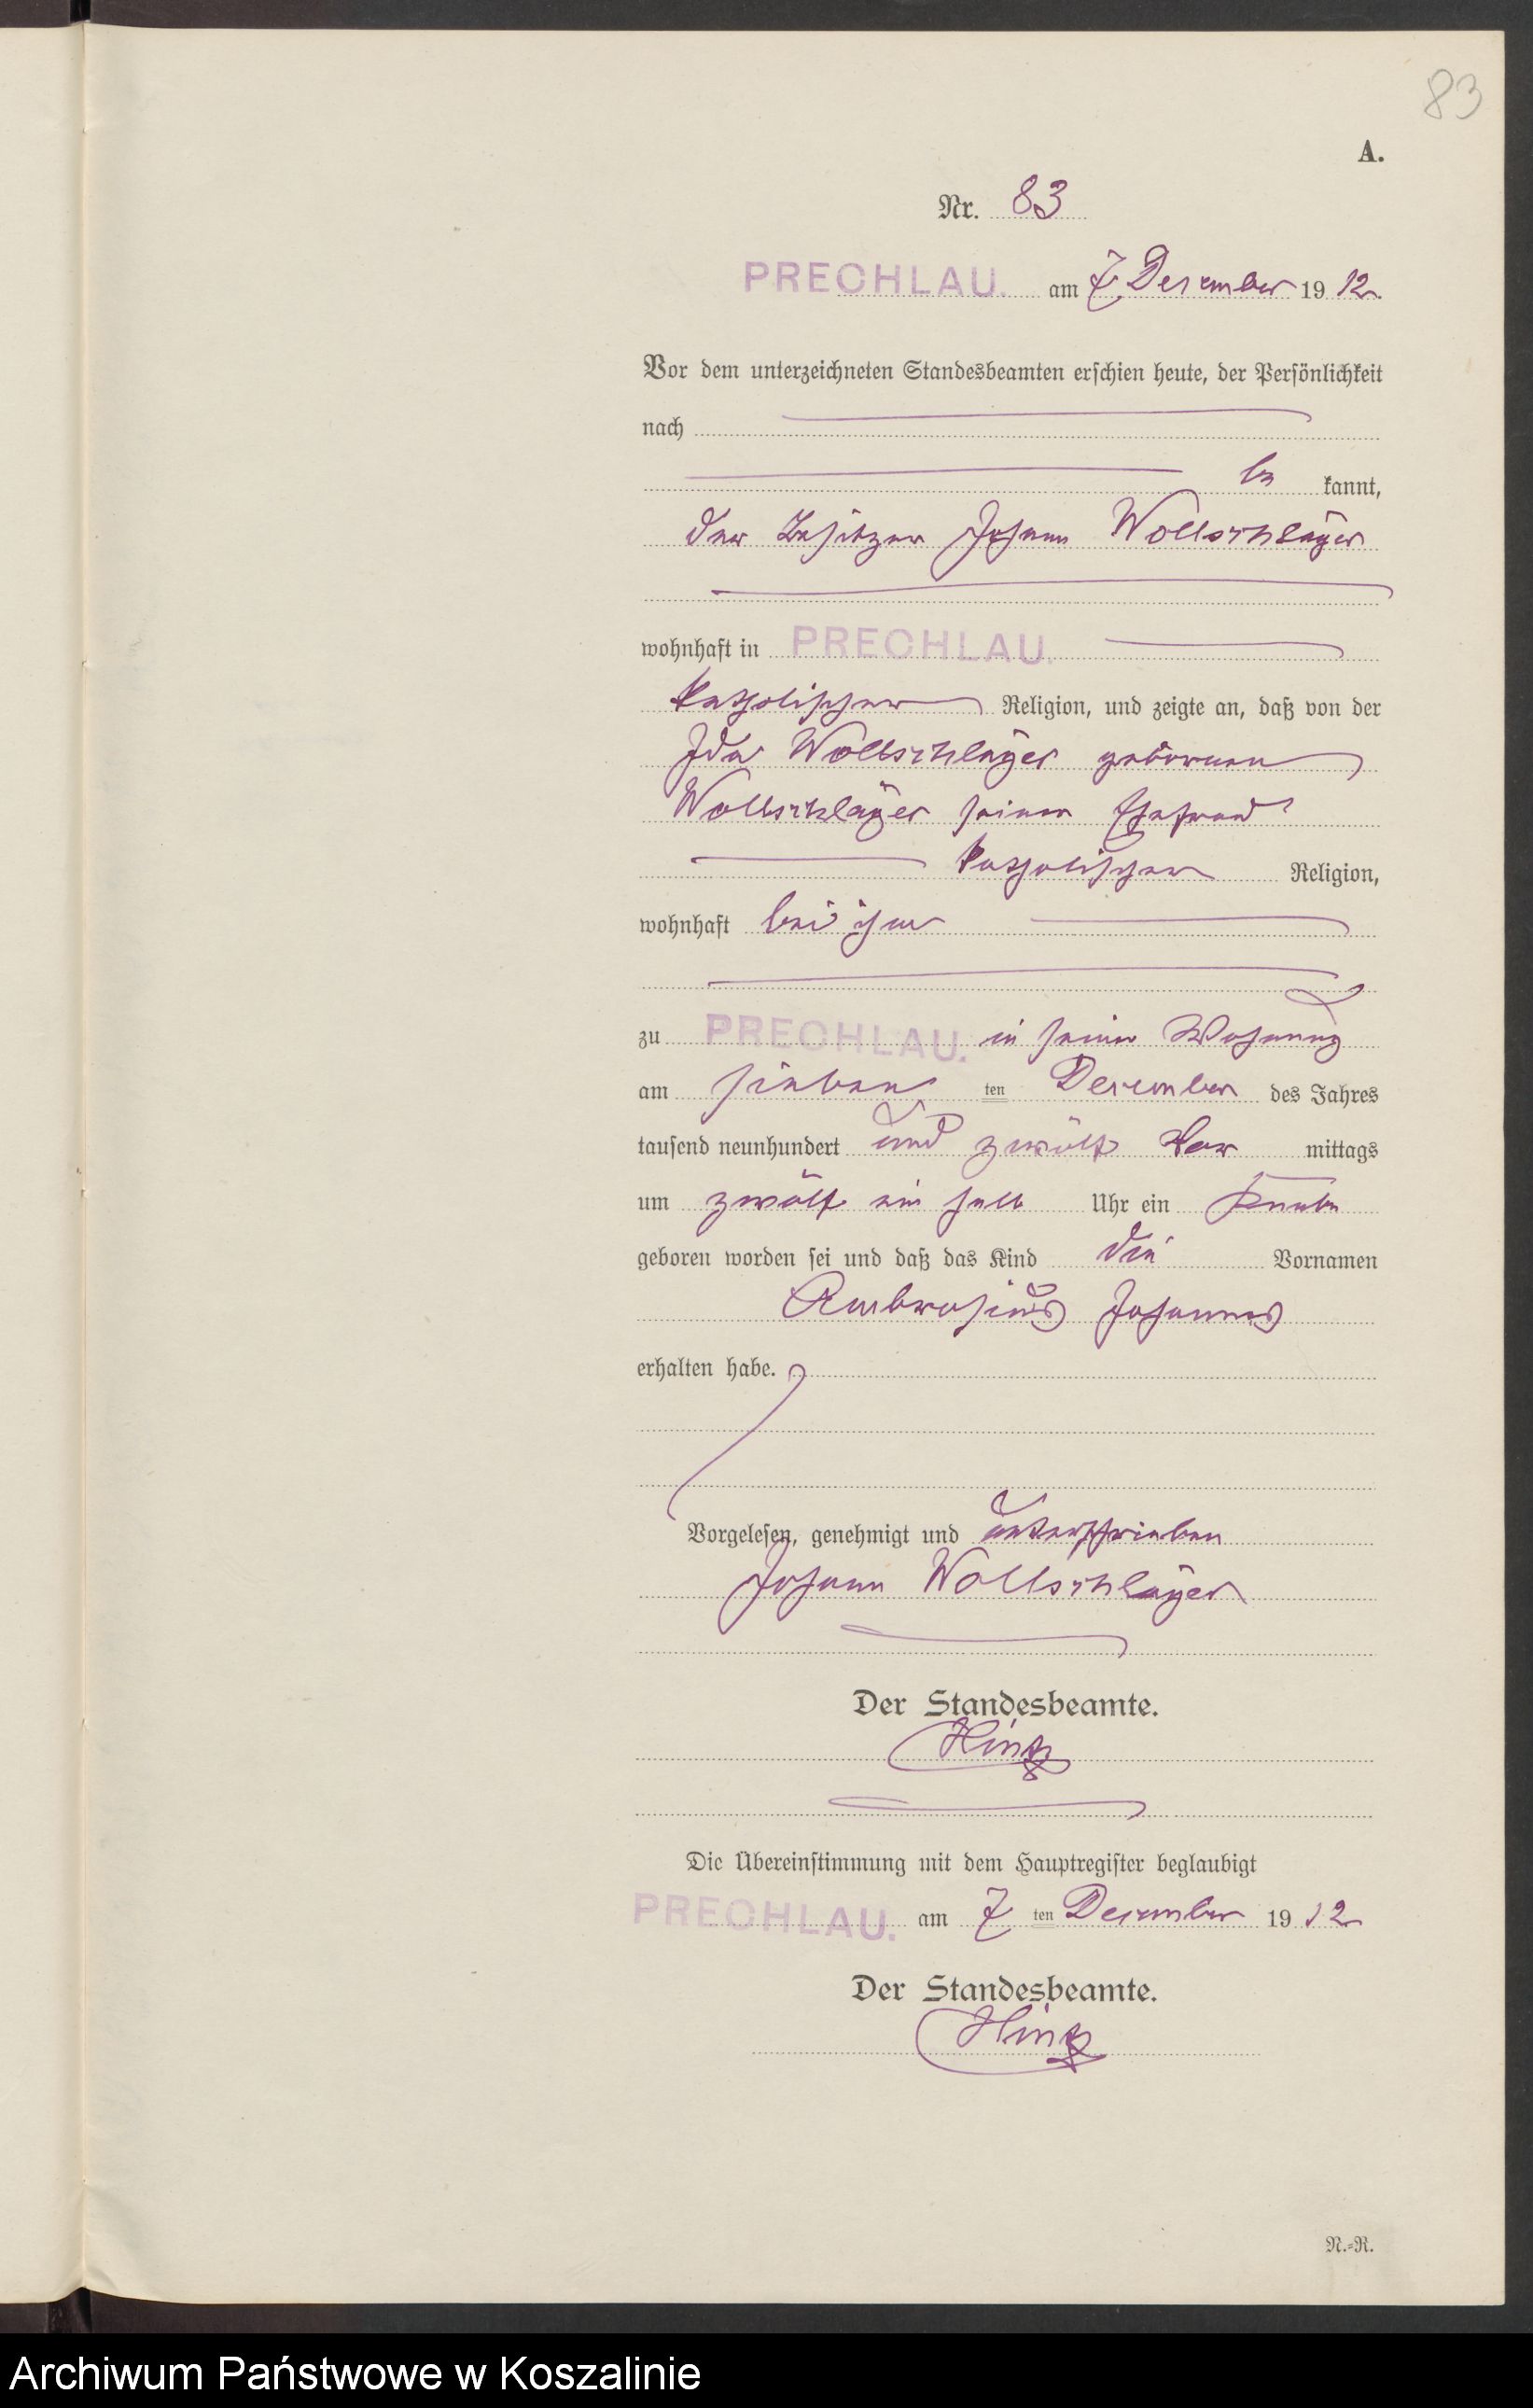 83
A.
Nr. 83
PRECHLAU. am 7. Dezember 1912.
Vor dem unterzeichneten Standesbeamten erschien heute, der Persönlichkeit
nach
be kannt,
der Besitzer Johann Wollschläger
wohnhaft in PRECHLAU.
katholischer Religion, und zeigte an, daß von der
Ida Wollschläger geborenen
Wollschläger seiner Ehefrau
katholischer Religion,
wohnhaft bei ihm
zu PRECHLAU. in seiner Wohnung
am sieben ten Dezember des Jahres
tausend neunhundert und zwölf Vor mittags
um zwölf ein halb Uhr ein Knabe
geboren worden sei und daß das Kind die Vornamen
Ambrosius Johannes
erhalten habe.
Vorgelesen, genehmigt und unterschrieben
Johann Wollschläger
Der Standesbeamte.
Hintz
Die Übereinstimmung mit dem Hauptregister beglaubigt
PRECHLAU. am 7 ten Dezember 1912
Der Standesbeamte.
Hintz
N.-R.
Archiwum Państwowe w Koszalinie